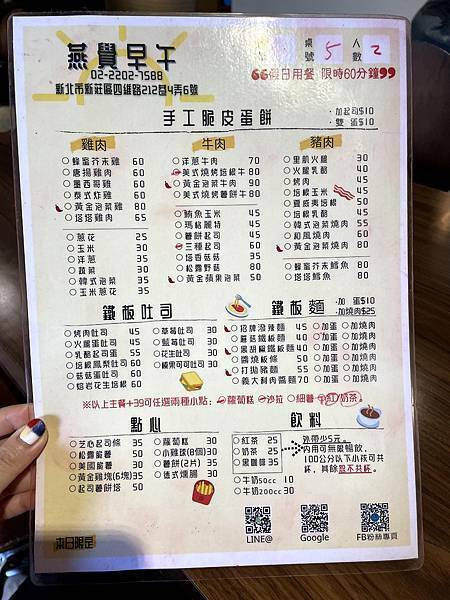 燕覺早午
桌號 5 人數 2
02-2202-7588
新北市新莊區四維路212巷4弄6號
假日用餐 限時60分鐘
手工脆皮蛋餅
·加起司$10
·雙 蛋$10
雞肉
蜂蜜芥末雞 60
唐揚雞肉 60
墨西哥雞 60
泰式炸雞 60
黃金泡菜雞 80
塔塔雞肉 65
蔥花 25
玉米 30
洋蔥 30
蔬菜 30
韓式泡菜 35
玉米蔥花 35
牛肉
洋蔥牛肉 70
美式燒烤培根牛 80
黃金泡菜牛肉 90
美式燒烤薯餅牛 80
鮪魚玉米 45
瑪格麗特 45
薯餅起司 45
三種起司 60
塔香菇菇 35
松露野菇 80
黃金蘋果泡菜 50
豬肉
里肌火腿 30
火腿乳酪 40
烤肉 35
培根玉米 45
夏威夷培根 50
培根乳酪 45
韓式泡菜燒肉 55
和風燒肉 60
黃金泡菜燒肉 80
蜂蜜芥末鱈魚 80
塔塔鱈魚 80
鐵板吐司
烤肉吐司 45
火腿蛋吐司 45
乳酪起司蛋 55
培根鳳梨吐司 60
菇菇蛋吐司 60
熔岩花生培根 60
草莓吐司 30
藍莓吐司 30
花生吐司 30
榛果可可吐司 30
鐵板麵
·加 蛋$10
·加燒肉$25
招牌潑辣麵 45 加蛋 加燒肉
蘑菇鐵板麵 40 加蛋 加燒肉
黑胡椒鐵板麵 40 加蛋 加燒肉
醬燒板條 50 加蛋 加燒肉
打拋豬麵 55 加蛋 加燒肉
義大利肉醬麵 70 加蛋 加燒肉
※以上主餐+39可任選兩種小點: 蘿蔔糕 沙拉 細薯 紅/奶茶
點心
芝心起司條 35
松露脆薯 50
美國脆薯 30
黃金雞塊(6塊) 35
起司薯餅塔 50
蘿蔔糕 30
小雞球(8個) 30
薯餅(2片) 35
德式燻腸 30
飲料
紅茶 25
奶茶 25
黑咖啡 35
牛奶50cc 10
牛奶200cc 30
外帶少5元。
內用可無限暢飲,
100公分以下小孩可共
杯,其餘恕不共杯。
來日限定
LINE@
Google
FB粉絲專頁